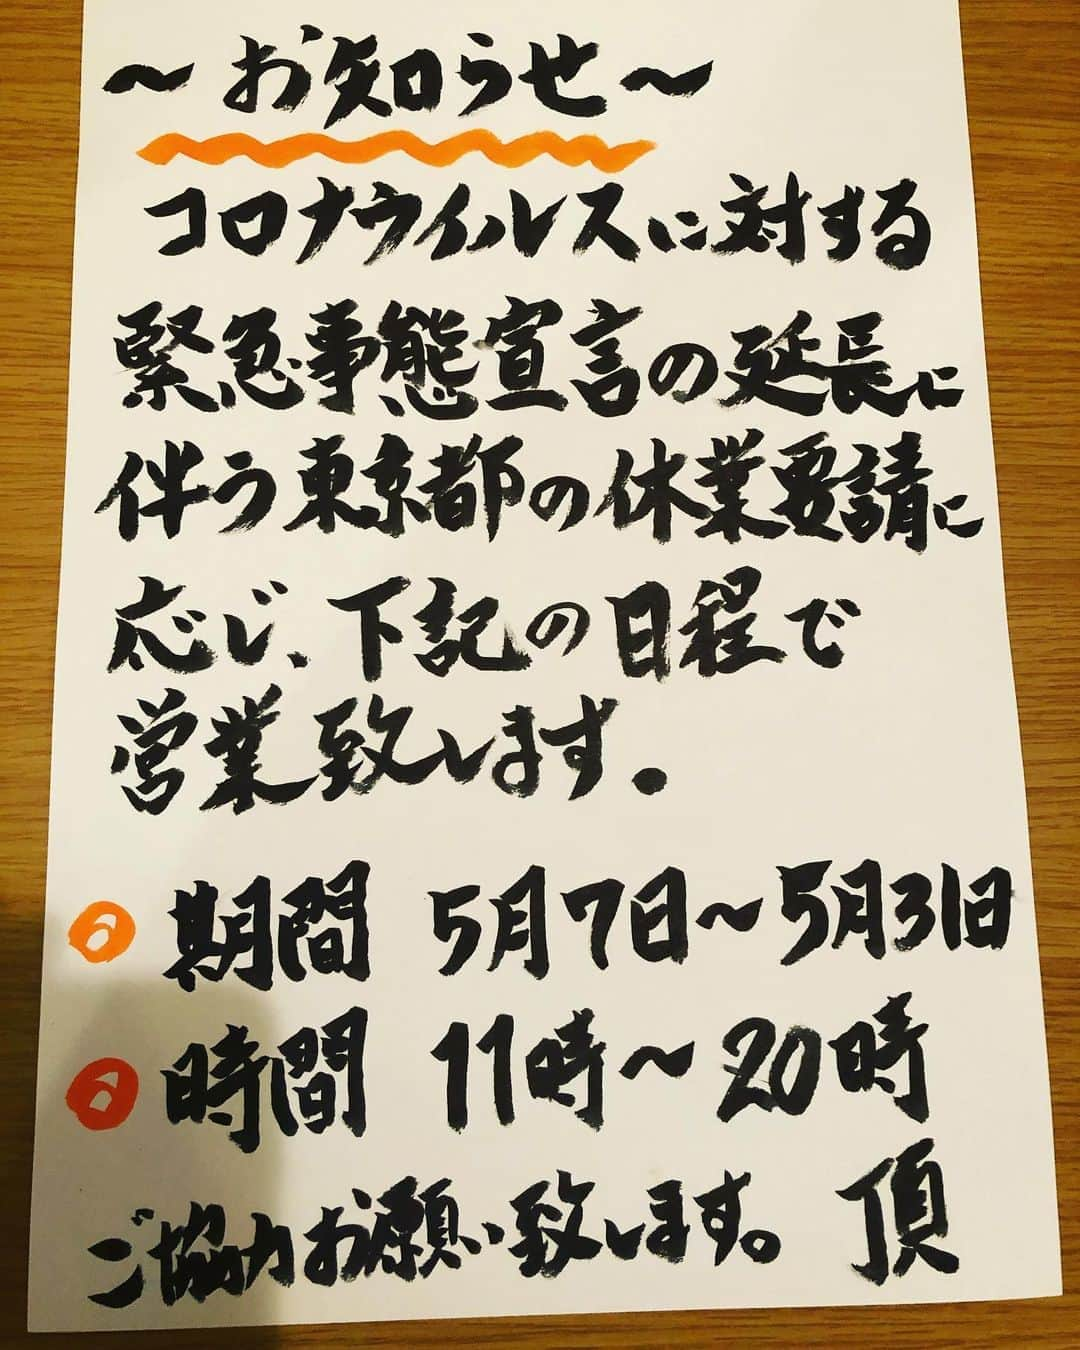 ～お知らせ～
コロナウイルスに対する
緊急事態宣言の延長に
伴う東京都の休業要請に
応じ、下記の日程で
営業致します。
期間 5月7日～5月31日
時間 11時～20時
ご協力お願い致します。 頂